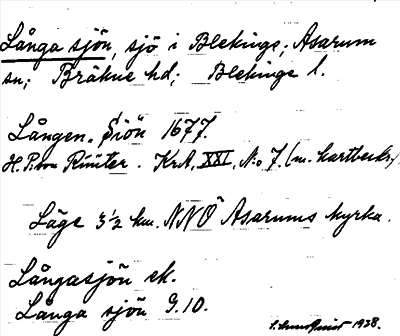 Långa sjön, sjö i Blekinge; Asarum
sn; Bräkne hd; Blekinge l.
Lången. Siön 1677.
H. P. von Rüüter. KrA, XXI, N:o 7. (m. kartbeskr.)
Läge 3½ km. NNÖ Asarums kyrka.
Långasjön ek.
Långa sjön G.10.
1938.